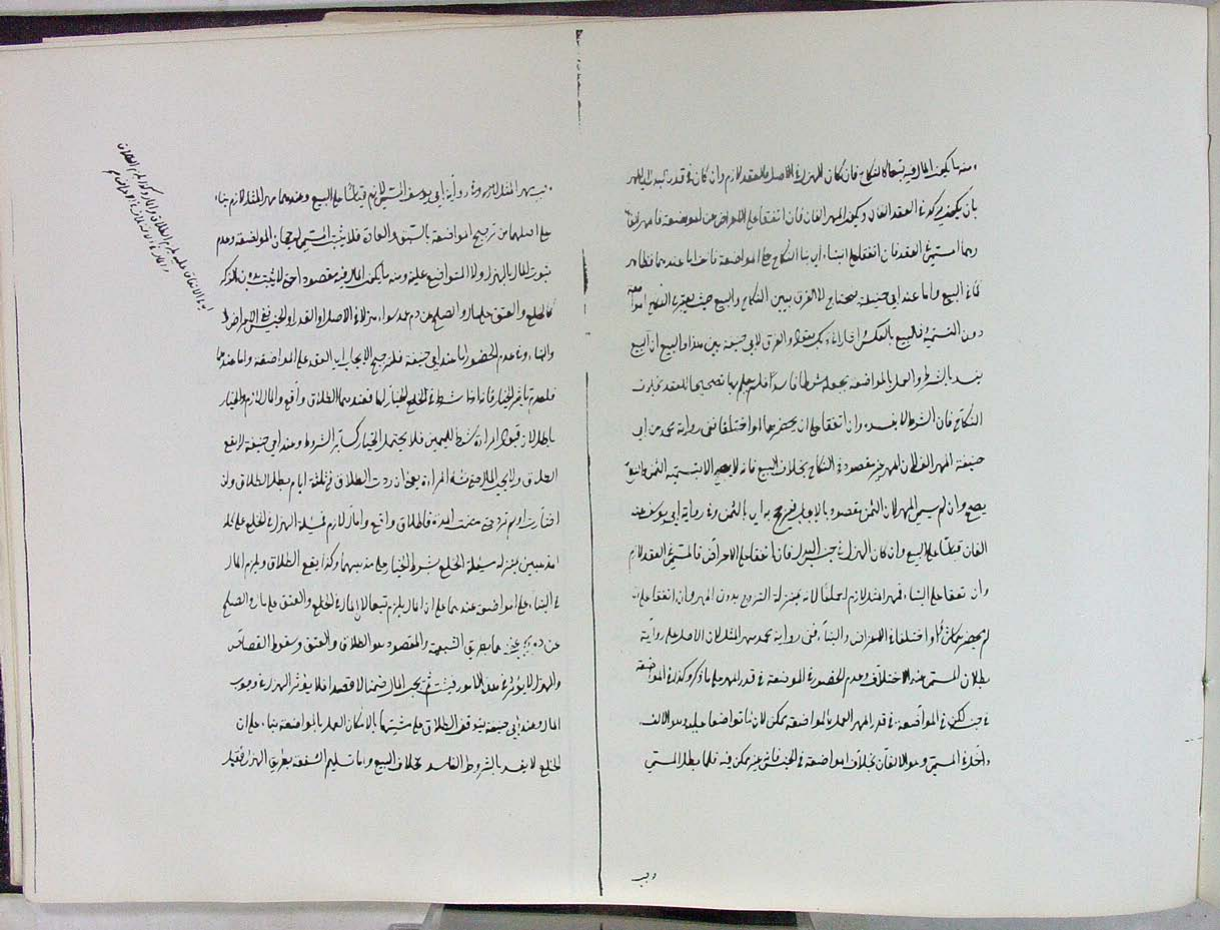 ومنه ما يكون المال فيه تبعا كالنكاح فان كان الهزل في الاصل فالعقد لازم وان كان في قدر البدل المهر
بان يكون في العقد الفان ويكون المهر الف فان اتفقا على الاعراض عن المواضعة فالمهر الفان
المسمى في العقد فان اتفقا على البناء اي بناء النكاح على المواضعة فالف اما عندهما فظاهر
كما في البيع واما عند ابي حنيفة فيحتاج الى الفرق بين النكاح والبيع حيث يعتبر في النكاح المواضعة
دون التسمية وفي البيع بالعكس والفرق لابي حنيفة بين هذا والبيع ان البيع
يفسد بالشرط والعمل بالمواضعة يجعله شرطا فاسدا فلم يعمل بها تصحيحا للعقد بخلاف
النكاح فان الشرط لا يفسده وان اتفقا على ان لم يحضرهما او اختلفا ففي رواية محمد عن ابي
حنيفة المهر الف لان المهر غير مقصود في النكاح بخلاف البيع فانه لا يصح الا بتسمية الثمن والنكاح
يصح وان لم يسم المهر لان الثمن مقصود بالايجاب فيرجح به اي بالثمن وفي رواية ابي يوسف عنه
الفان قياسا على البيع وان كان الهزل في جنس البدل فان اتفقا على الاعراض فالمسمى في العقد لازم
وان اتفقا على البناء فمهر المثل لازم اجماعا لانه بمنزلة التزوج بدون المهر وان اتفقا على انه
لم يحضرهما شيء او اختلفا في الاعراض والبناء ففي رواية محمد مهر المثل لان الاصل على رواية
بطلان المسمى عند الاختلاف وعدم الحضور في المواضعة في قدر المهر على ما ذكر وكذا في المواضعة
في جنسه لكن في المواضعة في قدر المهر العمل بالمواضعة ممكن لان ما تواضعا عليه وهو الالف
داخل في المسمى وهو الالفان بخلاف المواضعة في الجنس فانه غير ممكن فيه فلما بطل المسمى
وجب
وجب مهر المثل وفي رواية ابي يوسف المسمى لازم قياسا على البيع وعندهما مهر المثل لازم بناء
على اصلهما من ترجيح المواضعة بالسبق والعادة فلا يثبت المسمى لرجحان المواضعة وعدم
ثبوت المال بالهزل ولا المتواضع عليه ومنه ما يكون المال فيه مقصودا حتى لا يثبت بدون الذكر
كالخلع والعتق على مال والصلح عن دم عمد سواء هزلا في الاصل او القدر او الجنس ففي الاعراض
والبناء وفي عدم الحضور اما عند ابي حنيفة فلترجيح الايجاب اي العقد على المواضعة واما عندهما
فلعدم تاثير الخيار فانه اذا شرط في الخلع الخيار لها فعندهما الطلاق واقع والمال لازم والخيار
باطل لان قبول المرأة شرط لليمين فلا يحتمل الخيار كسائر الشروط وعند ابي حنيفة لا يقع
الطلاق ولا يجب المال حتى تشاء المرأة يعني ان ردت الطلاق في ثلثة ايام بطل الطلاق وان
اختارت او لم ترد حتى مضت المدة فالطلاق واقع والمال لازم فمسئلة الهزل في الخلع على كلا
المذهبين بمنزلة مسئلة الخلع بشرط الخيار على مذهبيهما وكذا يقع الطلاق ويلزم المال
في البناء على المواضعة عندهما على ان المال يلزم تبعا لان المال في الخلع والعتق على مال والصلح
عن دم عمد يجب عندهما بطريق التبعية والمقصود هو الطلاق والعتق وسقوط القصاص
والهزل لا يؤثر في هذه الامور فيثبت ثم يجب المال ضمنا لا قصدا فلا يؤثر الهزل في وجوب
المال وعند ابي حنيفة يتوقف الطلاق على مشيتها بالامكان العمل بالمواضعة بناء على ان
الخلع لا يفسد بالشروط الفاسدة بخلاف البيع واما تسليم الشفعة بطريق الهزل فقبل
الاتفاق عليه يلزم الطلاق والمال وكذا يلزم الطلاق
والمال في الاختلاف